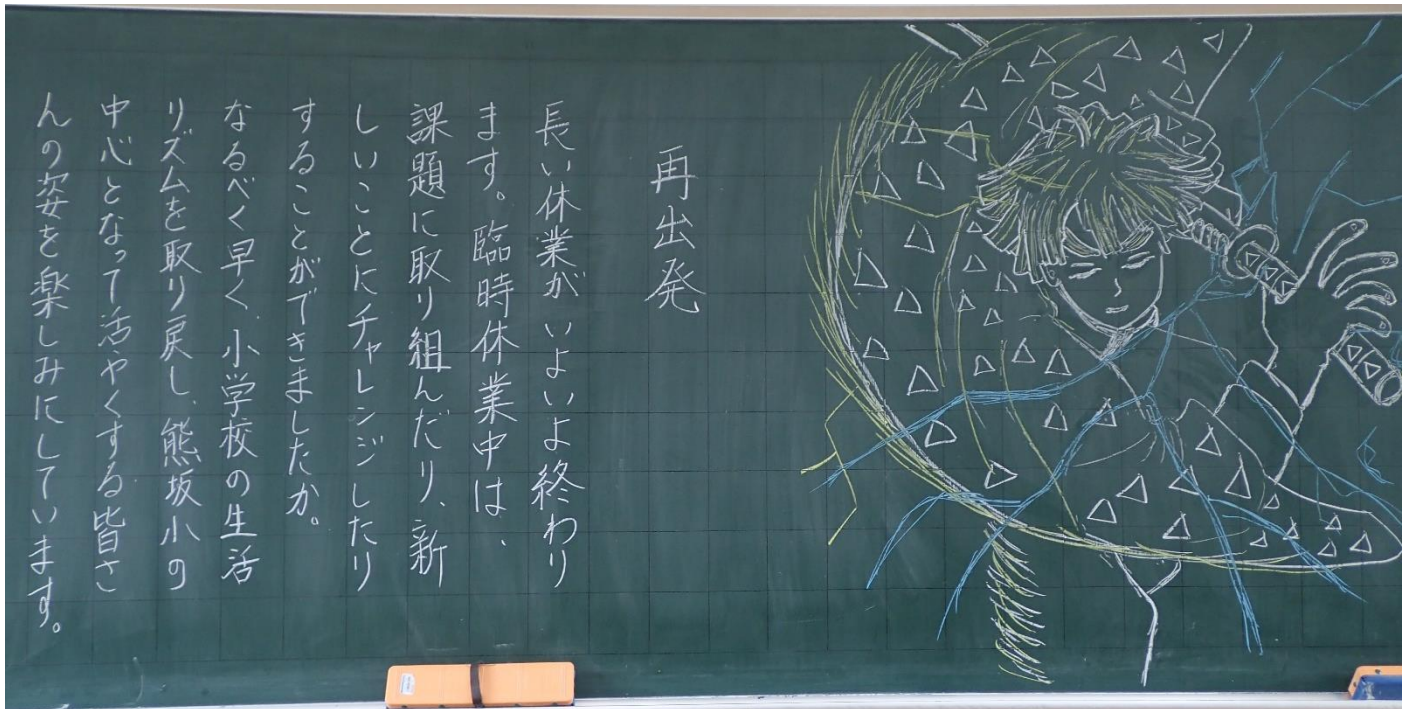 再出発
長い休業がいよいよ終わり
ます。臨時休業中は、
課題に取り組んだり、新
しいことにチャレンジしたり
することができましたか。
なるべく早く、小学校の生活
リズムを取り戻し、熊坂小の
中心となって活やくする皆さ
んの姿を楽しみにしています。